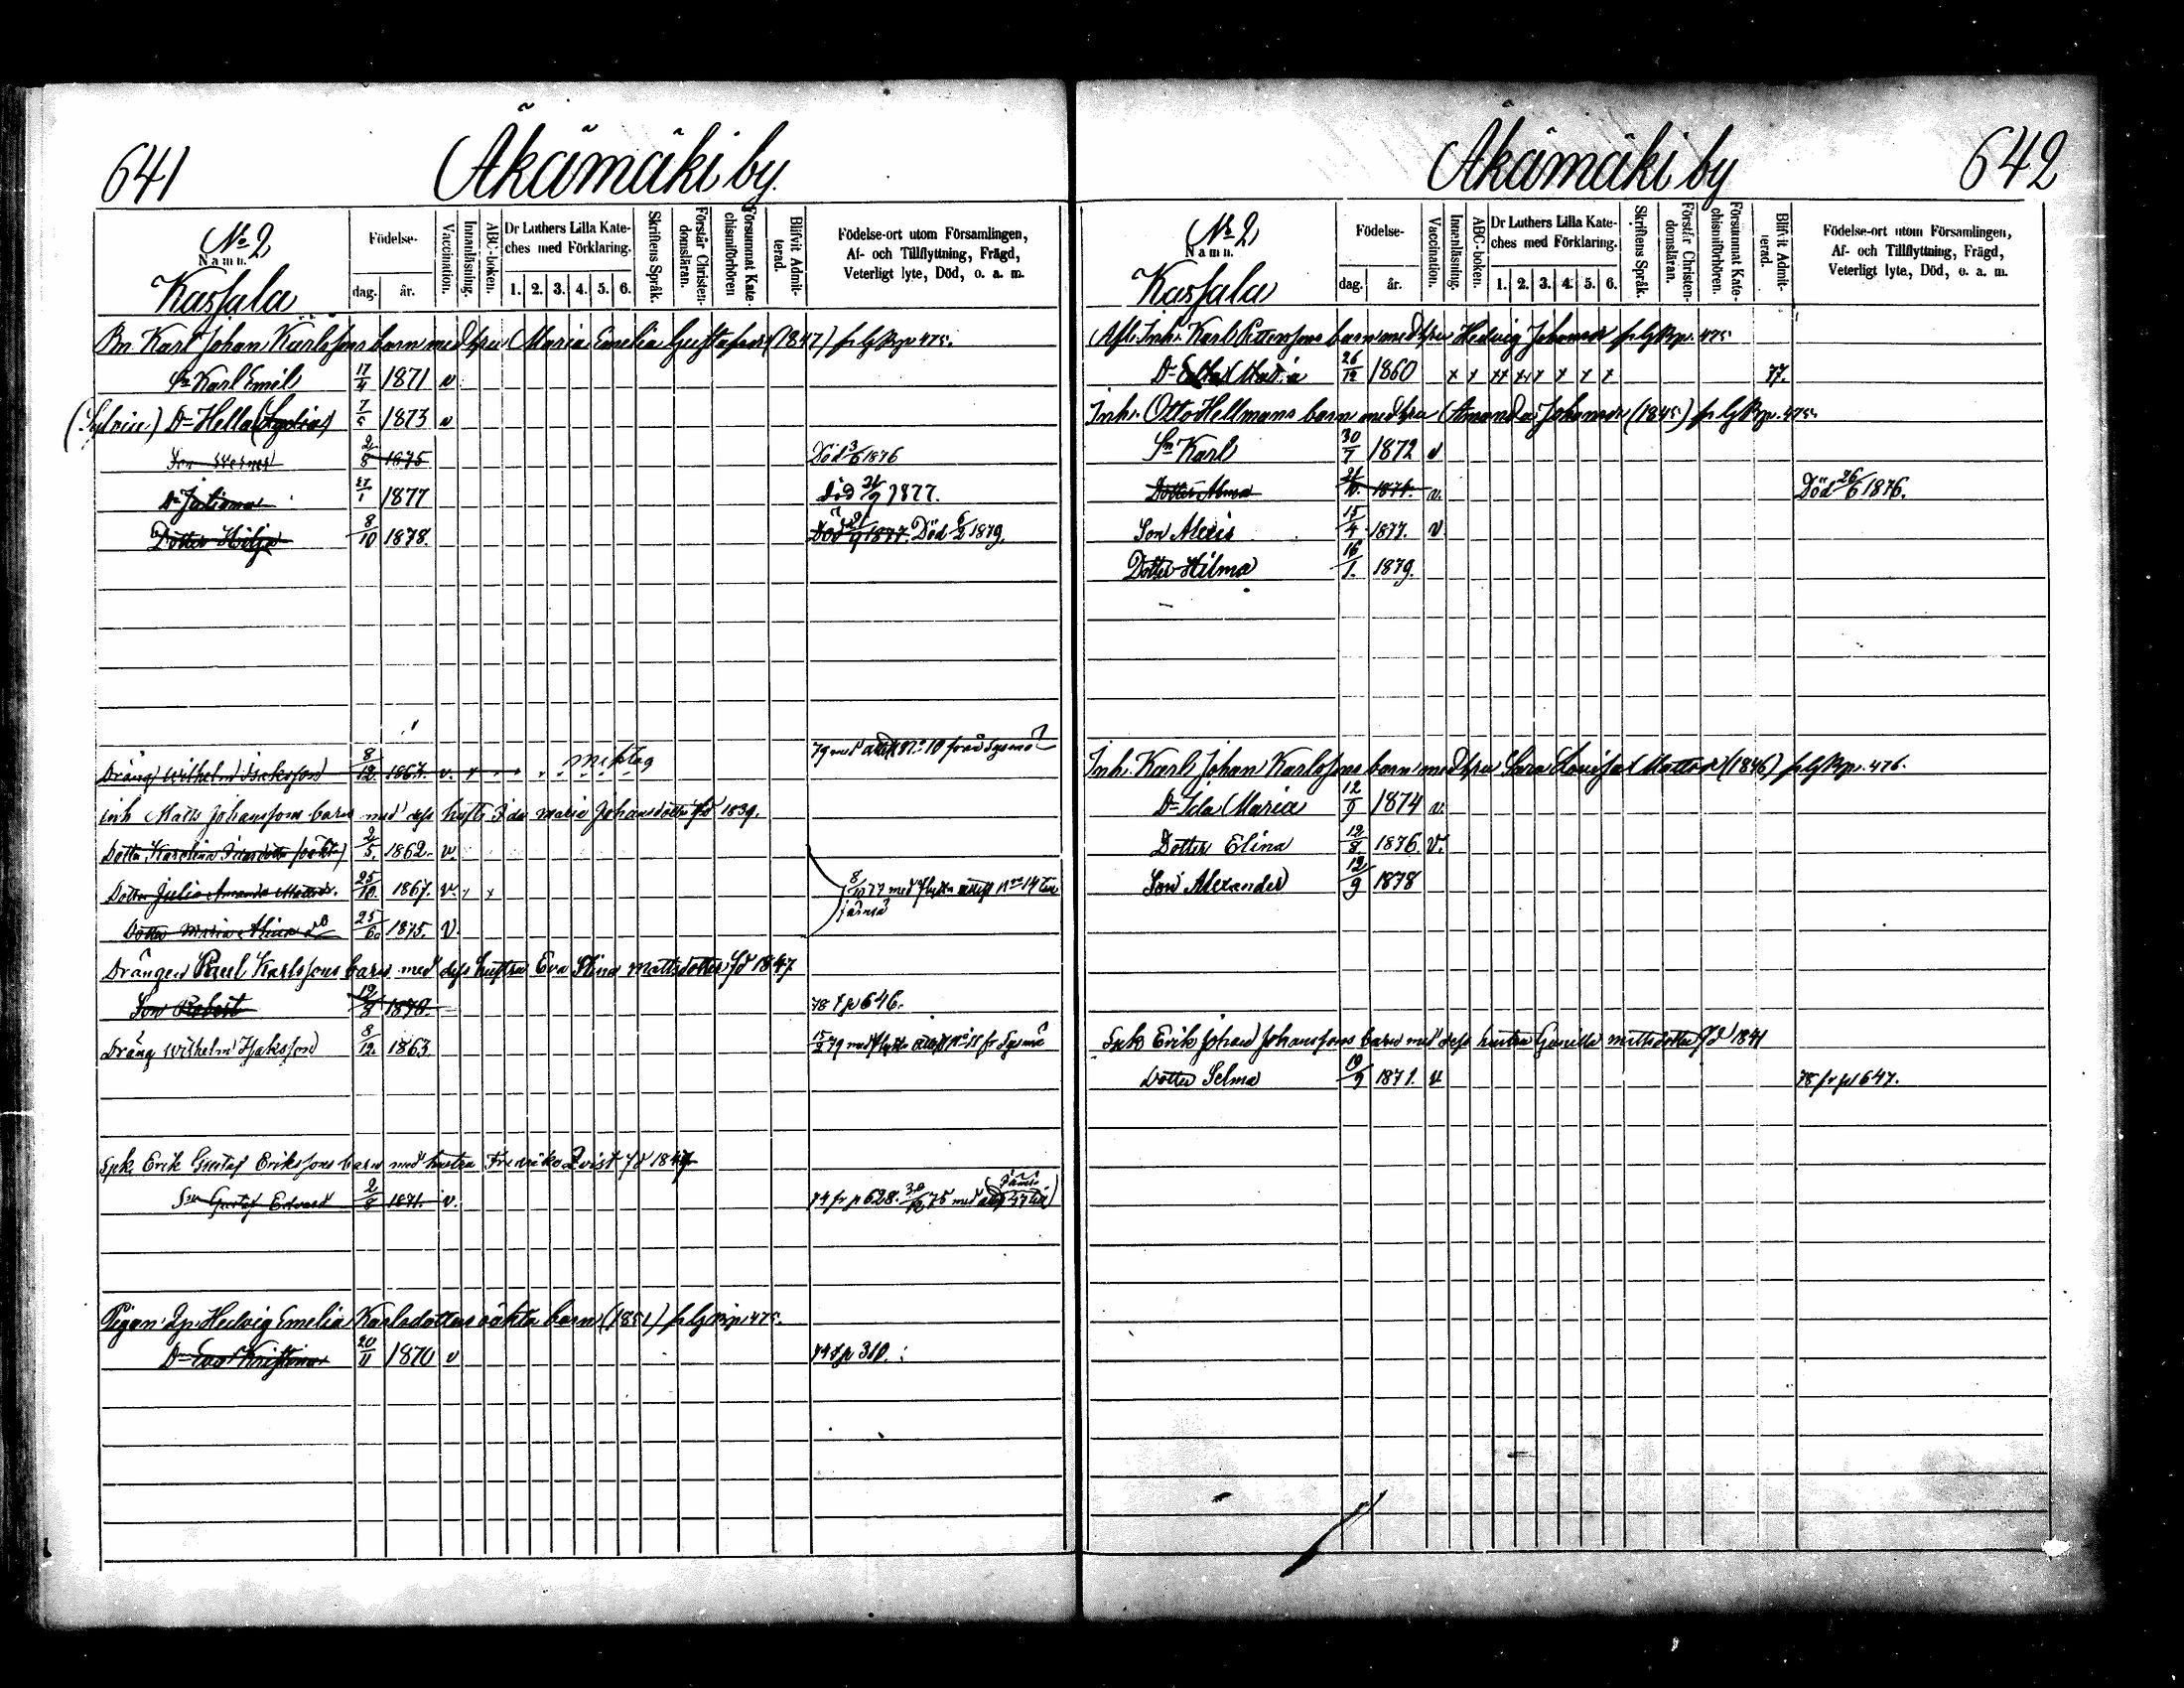 641
Äkämäki by.
No 2
Namn.
Kassala
Födelse-
dag.
år.
Vaccination.
Innanläsning.
ABC-boken.
Dr Luthers Lilla Kate-
ches med Förklaring.
1. 2. 3. 4. 5. 6.
Skriftens Språk.
Förstår Christen-
domsläran.
Försummat Kate-
chismiförhören
Blifvit Admit-
terad.
Födelse-ort utom Församlingen,
Af- och Tillflyttning, Frägd,
Veterligt lyte, Död, o. a. m.
Bn. Karl Johan Karlssons barn med hru Maria Emelia Gustafsdr (1847) fr lg Bp. 475.
Sn Karl Emil 17/4 1871 v
(Sylvia) Dr Hella (Lydia) 7/5 1873 v
Son Werner 2/8 1875 Död 3/6 1876
Dr Juliana 27/1 1877 död 21/9 1877.
Dotter Hilja 8/10 1878. Död 21/9 1877. Död 6/2 1879.
Dräng Wilhelm Isaksson 8/12. 1867. v. misstag 79 med attest No 10 från Sysmä
inh Matts Johanssons barn med dess hustr Ida Maria Johansdotter fd 1839.
Dotter Karolina 2/5. 1862. v.
Dotter Julia Amanda Mattsdr. 25/10. 1867. v. x x 8/10 77 med flyttn attest No 14 till
Dotter Maria Alina 25/6. 1875. V
Drängen Paul Karlssons barn med dess hustru Eva Stina Mattsdotter fd 1847
Son Robert 19/8 1878. 78 t p 646.
Dräng Wilhelm Isaksson 8/12. 1863 79 med flyttn attest fr Sysmä
Spk. Erik Gustaf Erikssons barn med hustru Fredrika Qvist fd 1847
Son Gustaf Edvard 2/8 1871. v. 74 fr p 628. 30/12 75 med att 47 till
Jämsä
Pigan Lp. Hedvig Emelia Karlsdotters oäkta barn (1851) fr lg Bp 475.
Dr Eva Kristina 20/11 1870 v 74 t p 310.
Äkämäki by
642
No 2
Namn.
Kassala
Födelse-
dag.
år.
Vaccination.
Innanläsning.
ABC-boken.
Dr Luthers Lilla Kate-
ches med Förklaring.
1. 2. 3. 4. 5. 6.
Skriftens Språk.
Förstår Christen-
domsläran.
Försummat Kate-
chismiförhören.
Blifvit Admit-
terad.
Födelse-ort utom Församlingen,
Af- och Tillflyttning, Frägd,
Veterligt lyte, Död, o. a. m.
Afl. Inh. Karl Pettersons barn med hru Hedvig Johansdr fr lg Bp. 475
Dr Maria 26/12 1860 x x xx xx x x x x 77.
Inh. Otto Hellmans barn med hru Amanda Johansdr (1845) fr lg Bp. 475.
Sn Karl 30/7 1872 v
Dotter Alma 1874. v. Död 26/6 1876.
Son Alexis 15/4 1877. v
Dotter Hilma 16/1. 1879.
Inh. Karl Johan Karlssons barn med hru Sara Lovisa Mattsdr (1846) fr lg Bp. 476.
Dr Ida Maria 12/9 1874 v.
Dotter Elina 12/8 1876 v.
Son Alexander 12/9 1878
Spk Erik Johan Johanssons barn med dess hustru Gunilla Mattsdotter fd 1841
Dotter Selma 19/9 1871. v 78 fr pd 647.